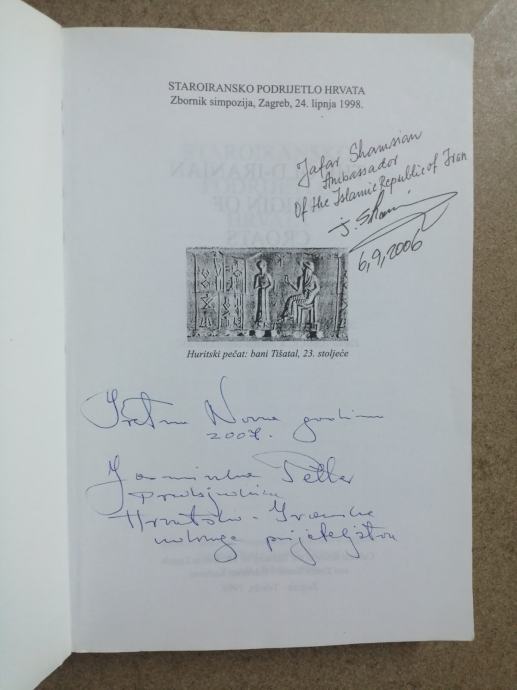 STAROIRANSKO PODRIJETLO HRVATA
Zbornik simpozija, Zagreb, 24. lipnja 1998.
Jafar Shamsian
Ambassador
Of the Islamic Republic of Iran
6,9,2006
Huritski pečat: bani Tišatal, 23. stoljeće
Sretnu Novu godinu
2007.
Jasminka Petter
Predsjednica
Hrvatsko - Iranske
udruge prijateljstva